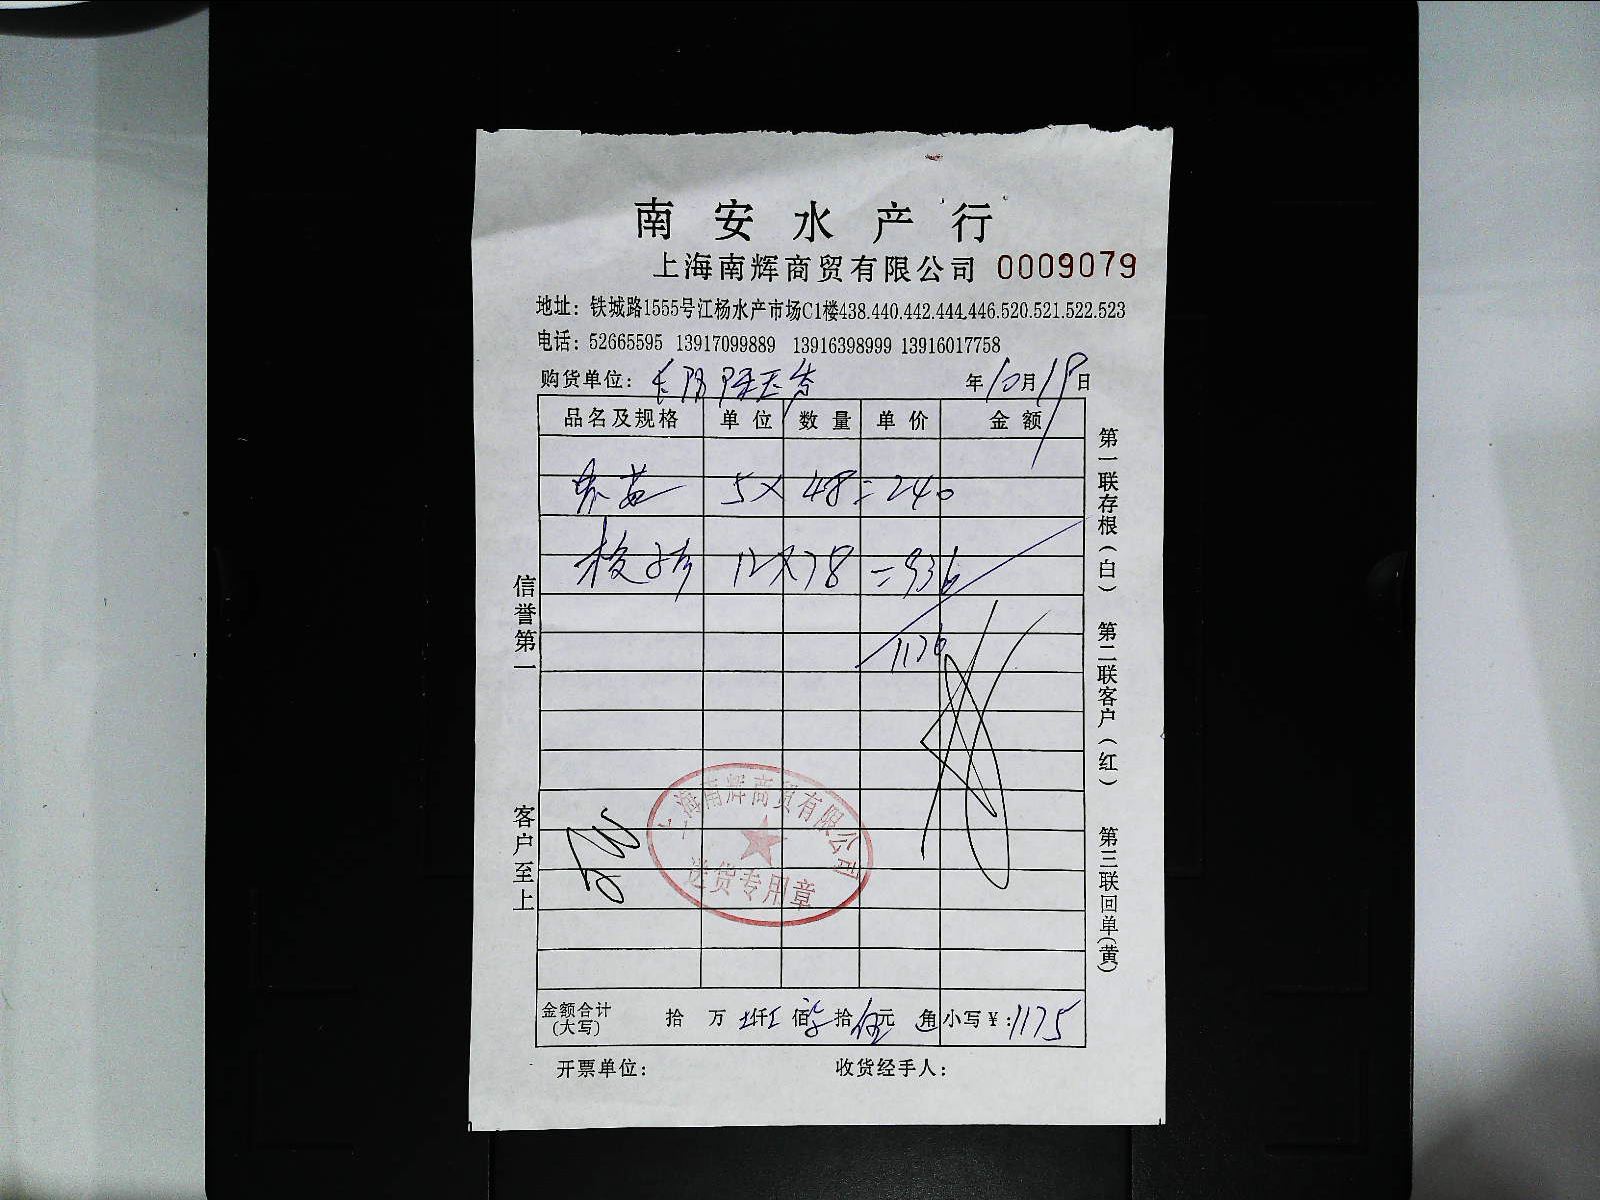 南安水产行
上海南辉商贸有限公司 0009079
地址：铁城路1555号江杨水产市场C1楼438.440.442.444.446.520.521.522.523
电话：52665595 13917099889 13916398999 13916017758
购货单位： 年10月19日
品名及规格 单位 数量 单价 金额
5×48=240
梭子 12×78=936
1176
上海南辉商贸有限公司
送货专用章
金额合计（大写） 拾 万 仟 佰 拾 伍元 角 小写￥:1175
开票单位： 收货经手人：
信誉第一
客户至上
第一联存根（白）
第二联客户（红）
第三联回单（黄）